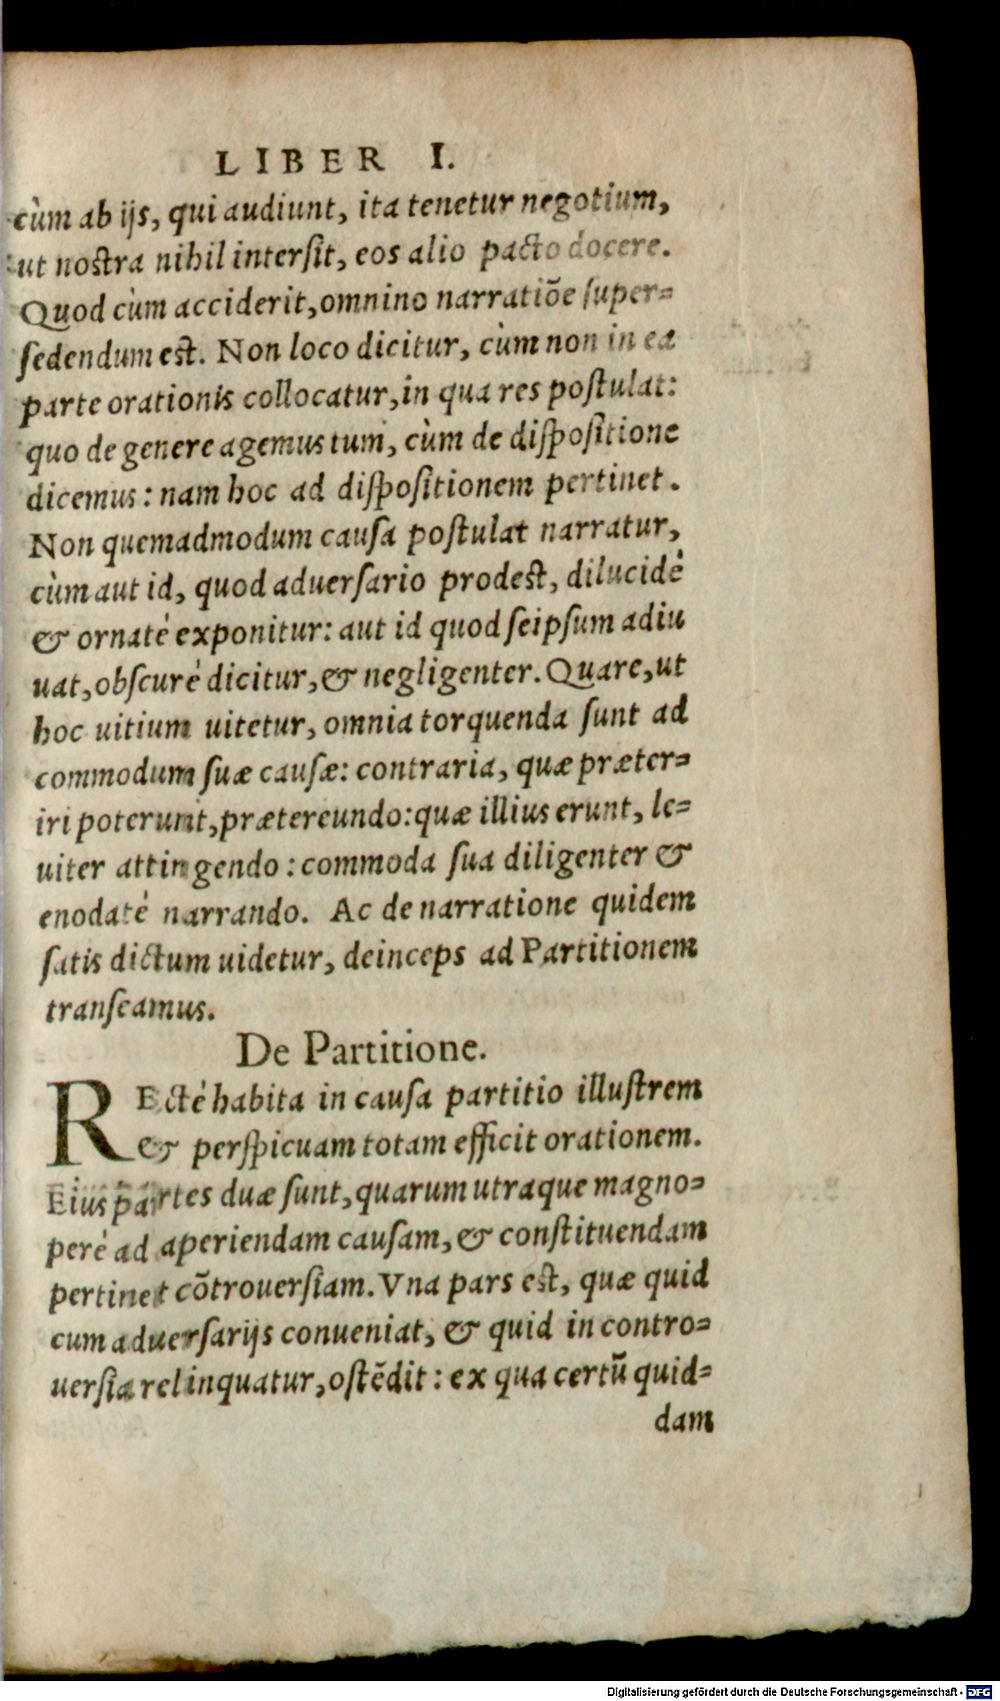 LIBER I.
cùm ab ijs, qui audiunt, ita tenetur negotium,
ut nostra nihil intersit, eos alio pacto docere.
Quod cùm acciderit, omnino narratiõe super-
sedendum est. Non loco dicitur, cùm non in ea
parte orationis collocatur, in qua res postulat:
quo de genere agemus tum, cùm de dispositione
dicemus: nam hoc ad dispositionem pertinet.
Non quemadmodum causa postulat narratur,
cùm aut id, quod aduersario prodest, dilucidè
& ornatè exponitur: aut id quod seipsum adiu
uat, obscurè dicitur, & negligenter. Quare, ut
hoc uitium uitetur, omnia torquenda sunt ad
commodum suæ causæ: contraria, quæ præter-
iri poterunt, prætereundo: quæ illius erunt, le-
uiter attingendo: commoda sua diligenter &
enodatè narrando. Ac de narratione quidem
satis dictum uidetur, deinceps ad Partitionem
transeamus.
De Partitione.
REctè habita in causa partitio illustrem
& perspicuam totam efficit orationem.
Eius partes duæ sunt, quarum utraque magno-
perè ad aperiendam causam, & constituendam
pertinet cõtrouersiam. Vna pars est, quæ quid
cum aduersarijs conueniat, & quid in contro-
uersia relinquatur, ostẽdit: ex qua certũ quid-
dam
Digitalisierung gefördert durch die Deutsche Forschungsgemeinschaft - DFG